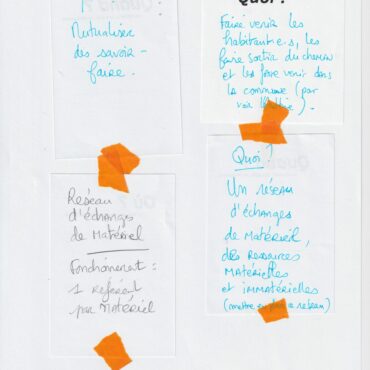 Mutualiser
des savoir-
faire.
Quoi ?
Faire venir les
habitant·e·s, les
faire sortir du chemin
et les faire venir dans
la commune (par
voir
Réseau
d'échanges
de Matériel
Fonctionnement :
1 référent
par matériel
Quoi ?
Un réseau
d'échanges
de matériel,
des ressources
matérielles
et immatérielles
(mettre en place